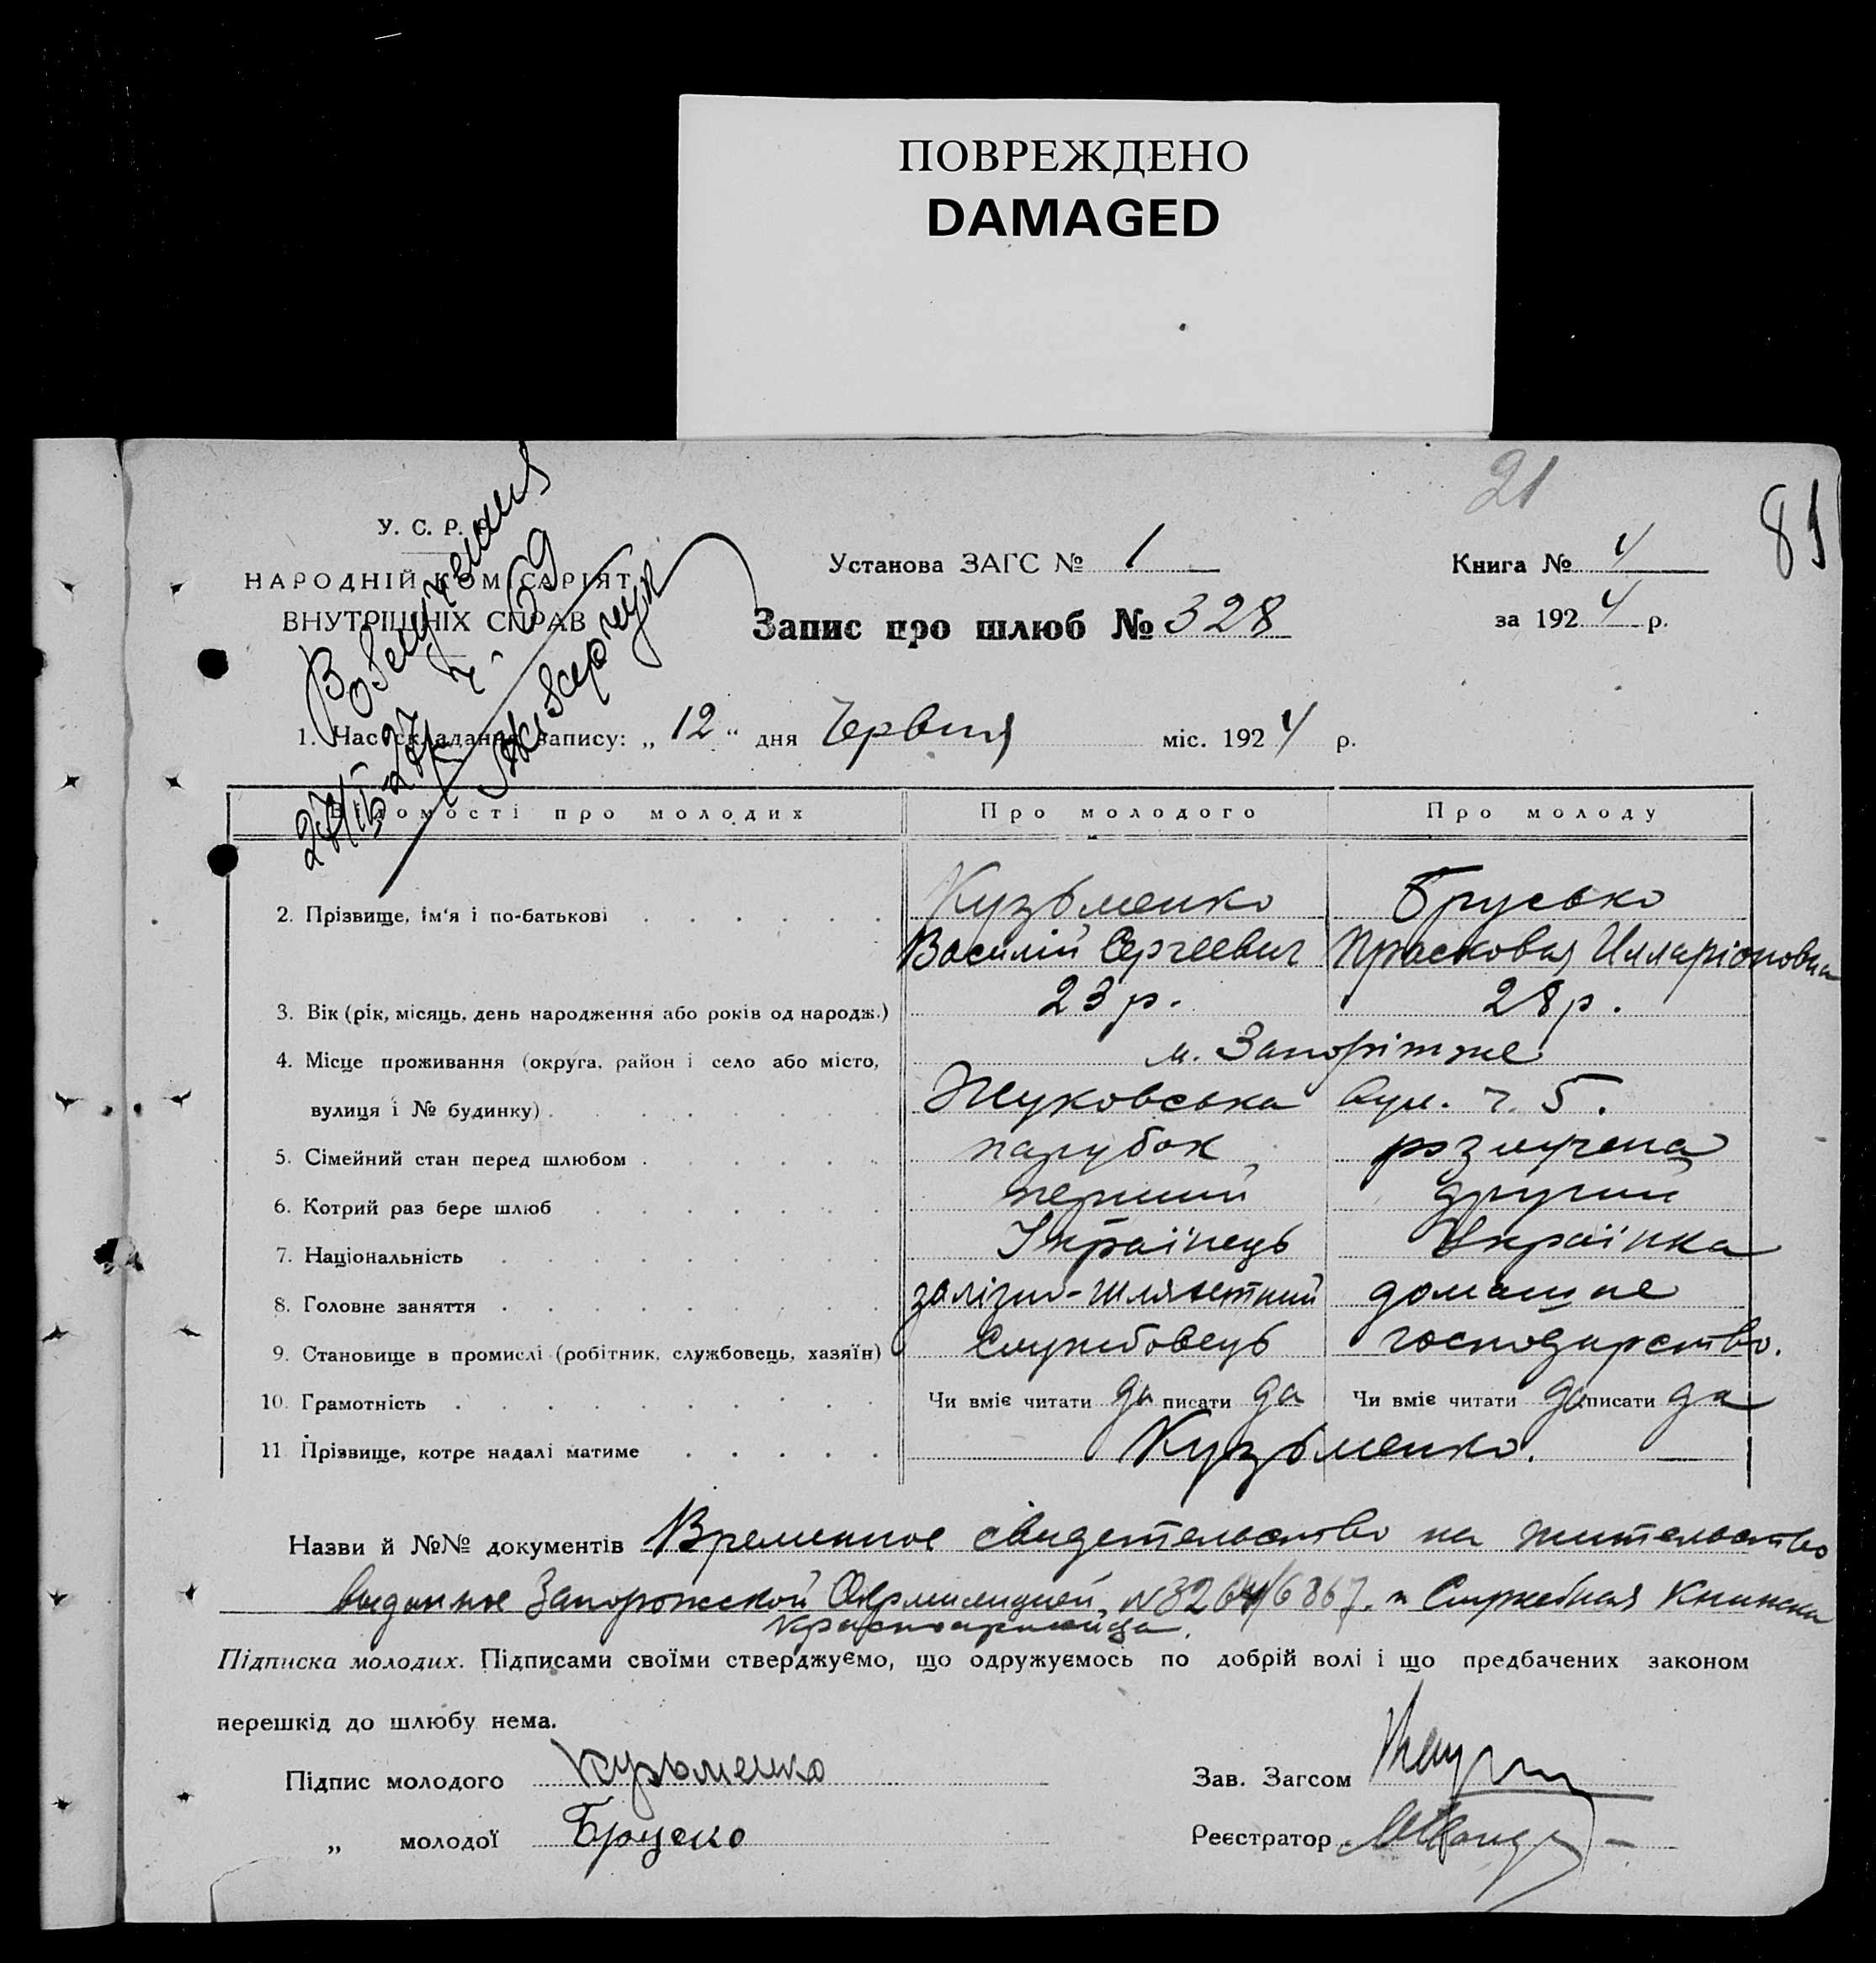 ПОВРЕЖДЕНО
DAMAGED
21
81
У. С. Р.
НАРОДНІЙ КОМІСАРІЯТ
ВНУТРІШНІХ СПРАВ
Установа ЗАГС № 1
Книга № 4
Запис про шлюб № 328
за 1924 р.
1. Час складання запису: „ 12 “ дня Червня міс. 1924 р.
Відомості про молодих Про молодого Про молоду
2. Прізвище, ім'я і по-батькові Кузьменко Брусько
Василій Сергеевич Прасковья Илларіоновна
3. Вік (рік, місяць, день народження або років од народж.) 23 р. 28 р.
4. Місце проживання (округа, район і село або місто, м. Запоріжже
вулиця і № будинку) Жуковська вул. ч. 5.
5. Сімейний стан перед шлюбом парубок розлучена
6. Котрий раз бере шлюб перший другий
7. Національність Українець Українка
8. Головне заняття залізно-шляхетний домашне
9. Становище в промислі (робітник, службовець, хазяїн) Службовець господарство.
10. Грамотність Чи вміє читати да писати да Чи вміє читати да писати да
11 Прізвище, котре надалі матиме Кузьменко.
Назви й №№ документів Временное свидетельство на жительство
выданное Запорожской Окрмилицией, № 3264/6867. и Служебная Книжка
красноармейца.
Підписка молодих. Підписами своїми стверджуємо, що одружуємось по добрій волі і що предбачених законом
перешкід до шлюбу нема.
Підпис молодого Кузьменко
Зав. Загсом
„ молодої Бруско
Реєстратор